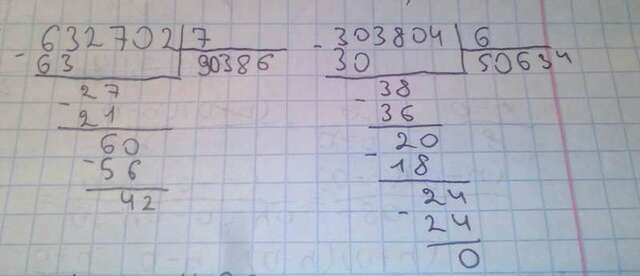 - 632702 | 7
63 90386
- 27
21
60
- 56
42
- 303804 | 6
30 50634
- 38
36
20
- 18
24
- 24
0